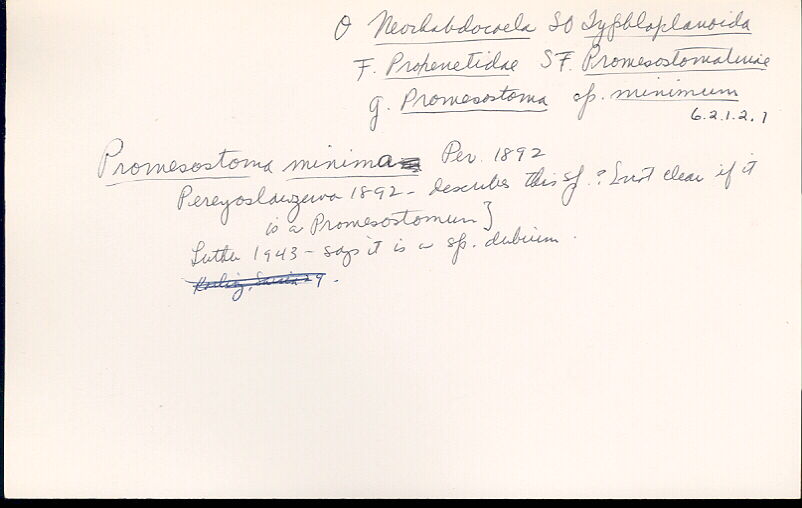 O Neorhabdocoela SO Typhloplanoida
F. Proxenetidae SF. Promesostomatinae
g. Promesostoma sp. minimum
6.2.1.2.1
Promesostoma minima Per. 1892
Pereyaslawzewa 1892 - describes this sp. ? [not clear if it
is a Promesostomum]
Luther 1943 - says it is a sp. dubium.